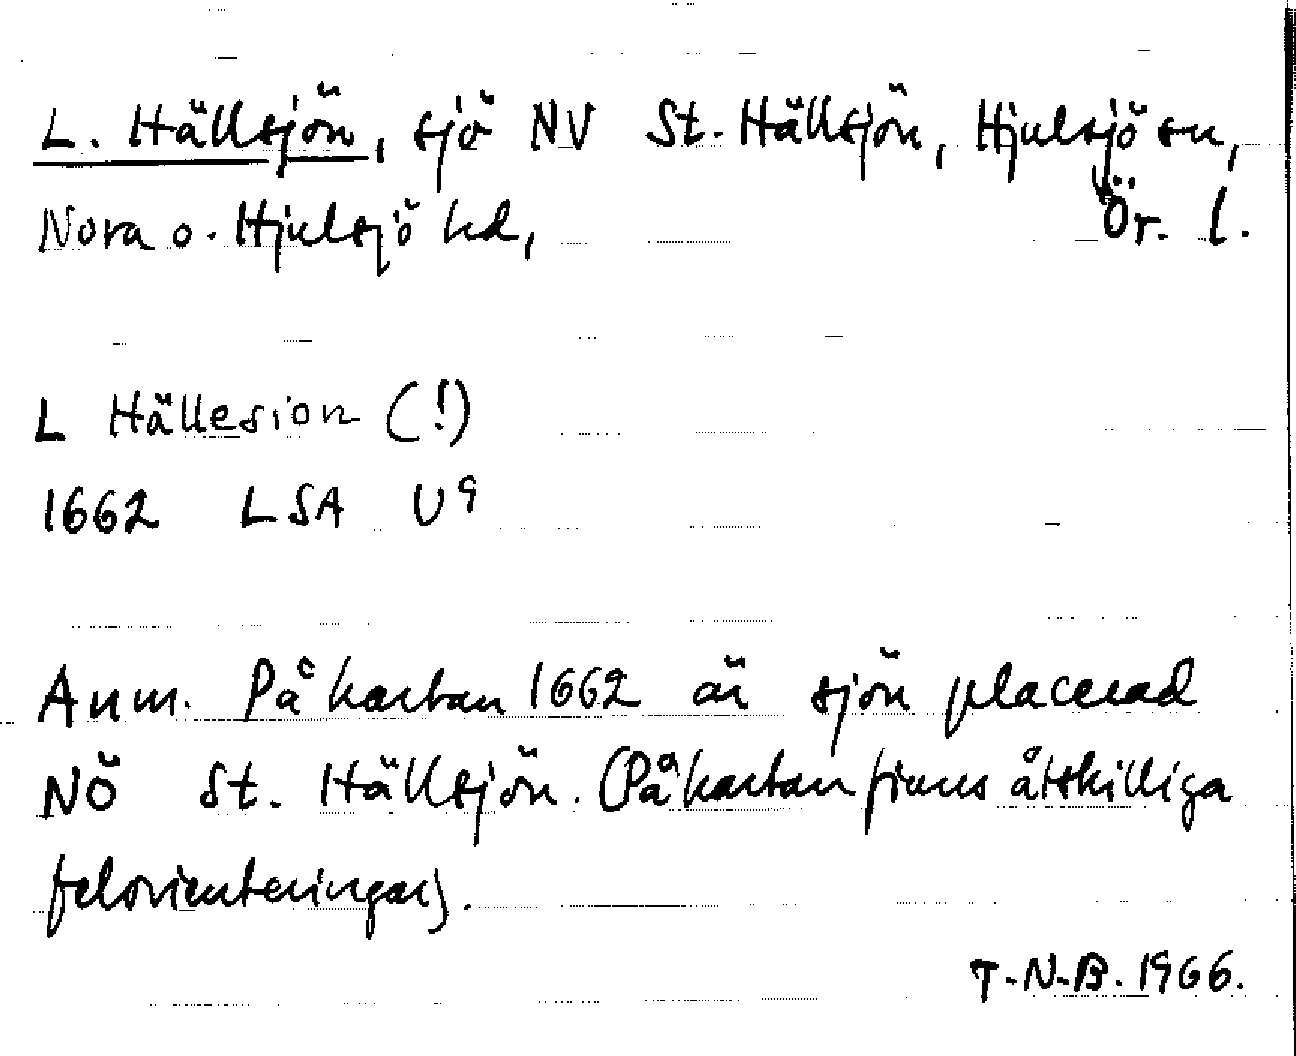 L. Hällsjön, sjö NV St. Hällsjön, Hjulsjö sn,
Nora o. Hjulsjö hd, Ör. l.
L Hällesion (!)
1662 LSA U9
Anm. På kartan 1662 är sjön placerad
NÖ St. Hällsjön. (På kartan finns åtskilliga
felorienteringar).
T.N.B. 1966.